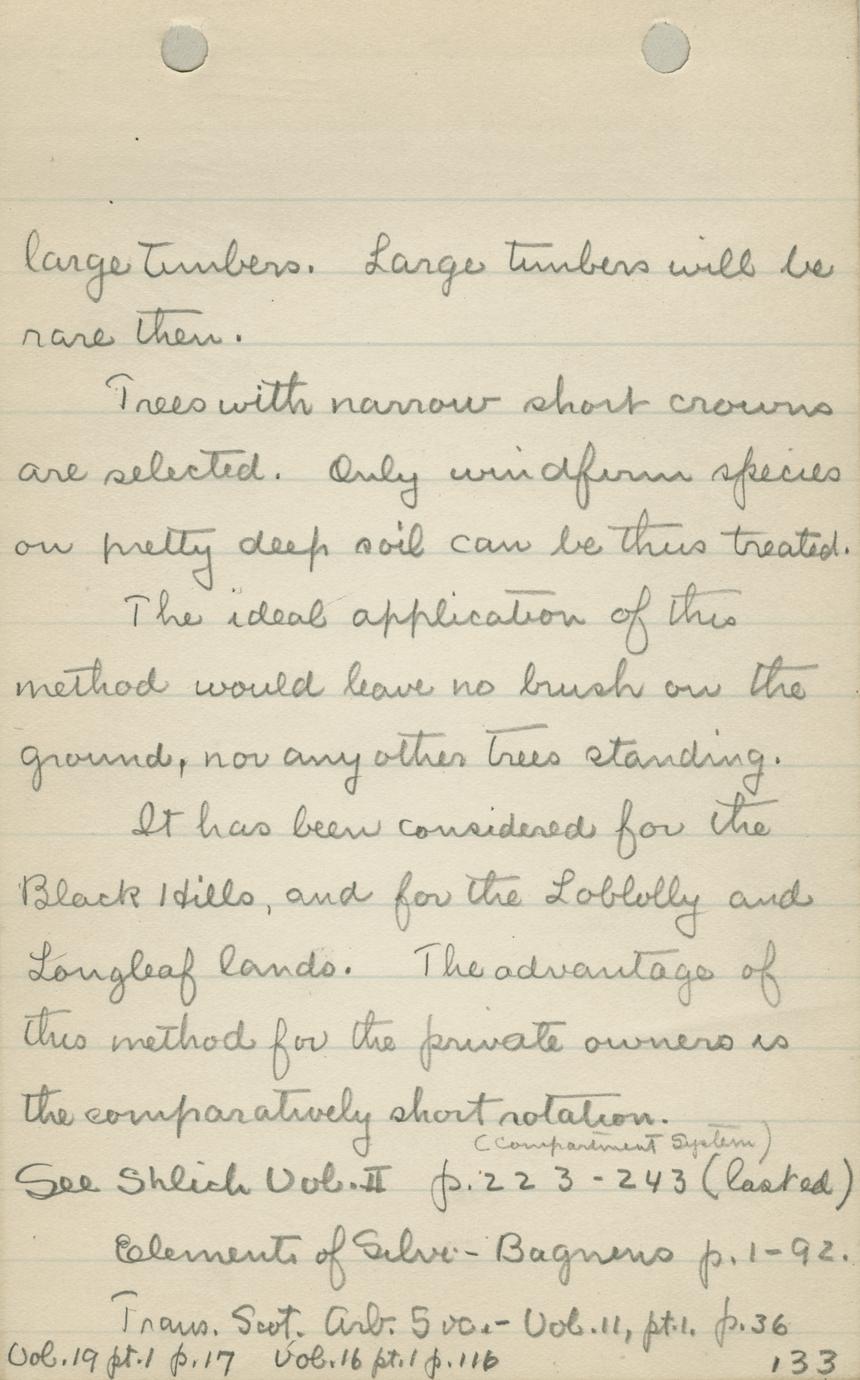 large timbers. Large timbers will be
rare then.
Trees with narrow short crowns
are selected. Only windfirm species
on pretty deep soil can be thus treated.
The ideal application of this
method would leave no brush on the
ground, nor any other trees standing.
It has been considered for the
Black Hills, and for the Loblolly and
Longleaf lands. The advantage of
this method for the private owners is
the comparatively short rotation.
(Compartment System)
See Shlich Vol. II p. 223-243 (last ed)
Elements of Silvi- Bagneris p. 1-92.
Trans. Scot. Arb. Soc.- Vol. 11, pt. 1. p. 36
Vol. 19 pt. 1 p. 17 Vol. 16 pt. 1 p. 116
133